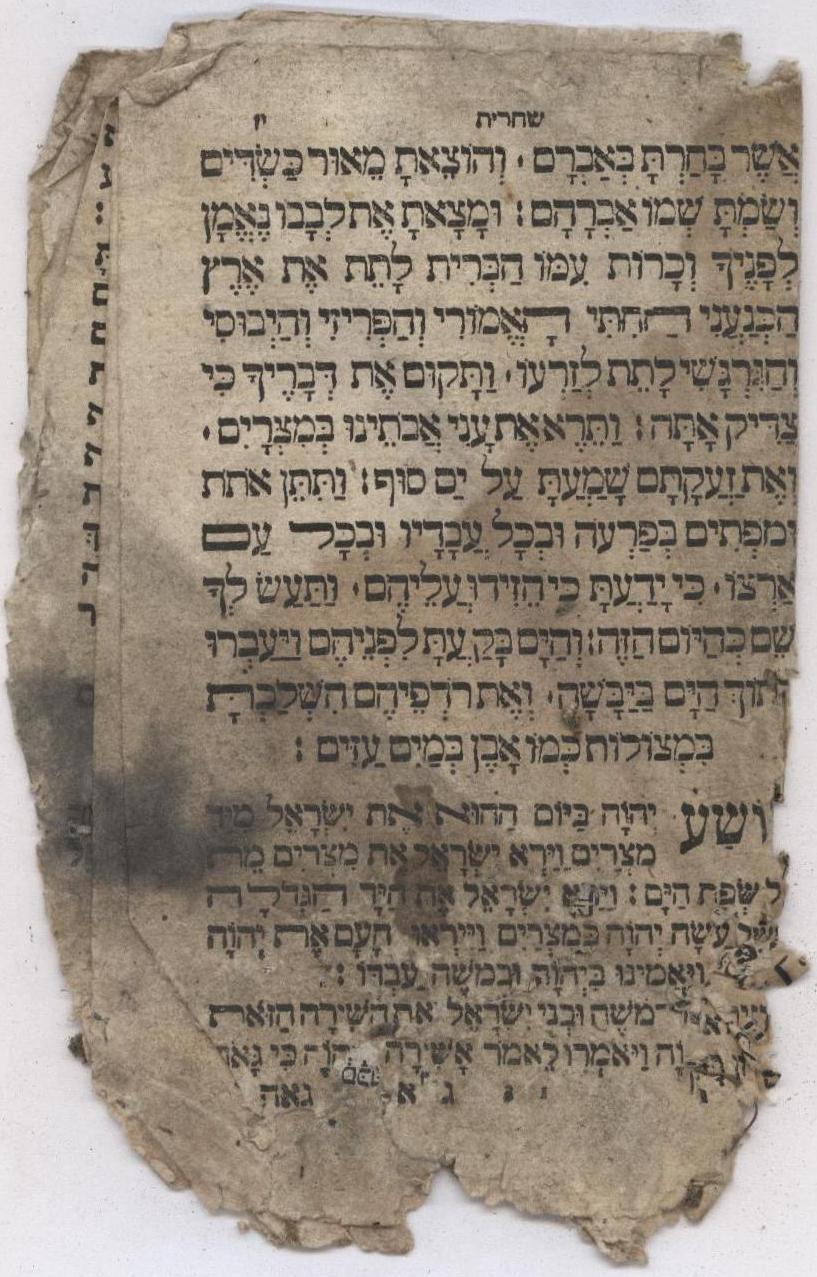 שחרית יז
אֲשֶׁר בָּחַרְתָּ בְּאַבְרָם · וְהוֹצֵאתָ מֵאוּר כַּשְׂדִּים
וְשַׂמְתָּ שְׁמוֹ אַבְרָהָם : וּמָצָאתָ אֶת לְבָבוֹ נֶאֱמָן
לְפָנֶיךָ וְכָרוֹת עִמּוֹ הַבְּרִית לָתֵת אֶת אֶרֶץ
הַכְּנַעֲנִי הַחִתִּי הָאֱמוֹרִי וְהַפְּרִיזִי וְהַיְבוּסִי
וְהַגִּרְגָּשִׁי לָתֵת לְזַרְעוֹ · וַתָּקוּם אֶת דְּבָרֶיךָ כִּי
צַדִּיק אָתָּה : וַתֵּרֶא אֶת עֳנִי אֲבֹתֵינוּ בְּמִצְרָיִם ·
וְאֶת זַעֲקָתָם שָׁמַעְתָּ עַל יַם סוּף : וַתִּתֵּן אֹתֹת
וּמֹפְתִים בְּפַרְעֹה וּבְכָל עֲבָדָיו וּבְכָל עַם
אַרְצוֹ · כִּי יָדַעְתָּ כִּי הֵזִידוּ עֲלֵיהֶם · וַתַּעַשׂ לְךָ
שֵׁם כְּהַיּוֹם הַזֶּה : וְהַיָּם בָּקַעְתָּ לִפְנֵיהֶם וַיַּעַבְרוּ
בְתוֹךְ הַיָּם בַּיַּבָּשָׁה · וְאֶת רֹדְפֵיהֶם הִשְׁלַכְתָּ
בִּמְצוֹלוֹת כְּמוֹ אֶבֶן בְּמַיִם עַזִּים :
וֹשַׁע יְהוָֹה בַּיּוֹם הַהוּא אֶת יִשְׂרָאֵל מִיַּד
מִצְרַיִם וַיַּרְא יִשְׂרָאֵל אֶת מִצְרַיִם מֵת
ל שְׂפַת הַיָּם : וַיַּרְא יִשְׂרָאֵל אֶת הַיָּד הַגְּדֹלָה
עָשָׂה יְהוָֹה בְּמִצְרַיִם וַיִּירְאוּ הָעָם אֶת יְהוָֹה
וַיַּאֲמִינוּ בַּיהוָֹה וּבְמֹשֶׁה עַבְדּוֹ :
מֹשֶׁה וּבְנֵי יִשְׂרָאֵל אֶת הַשִּׁירָה הַזֹּאת
וָֹה וַיֹּאמְרוּ לֵאמֹר אָשִׁירָה כִּי גָאֹה
גאה